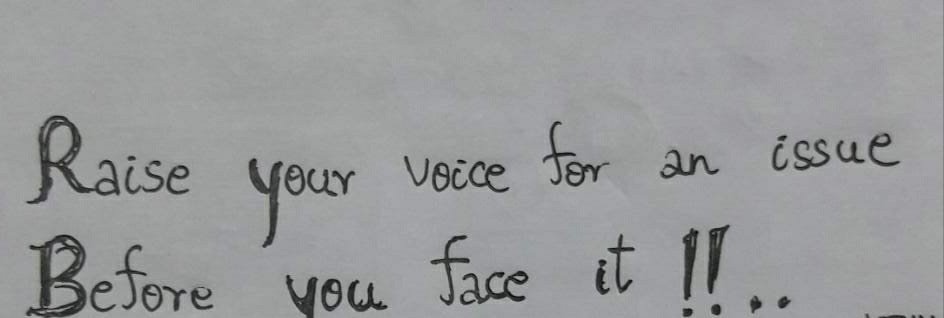 Raise your voice for an issue
Before you face it !!..